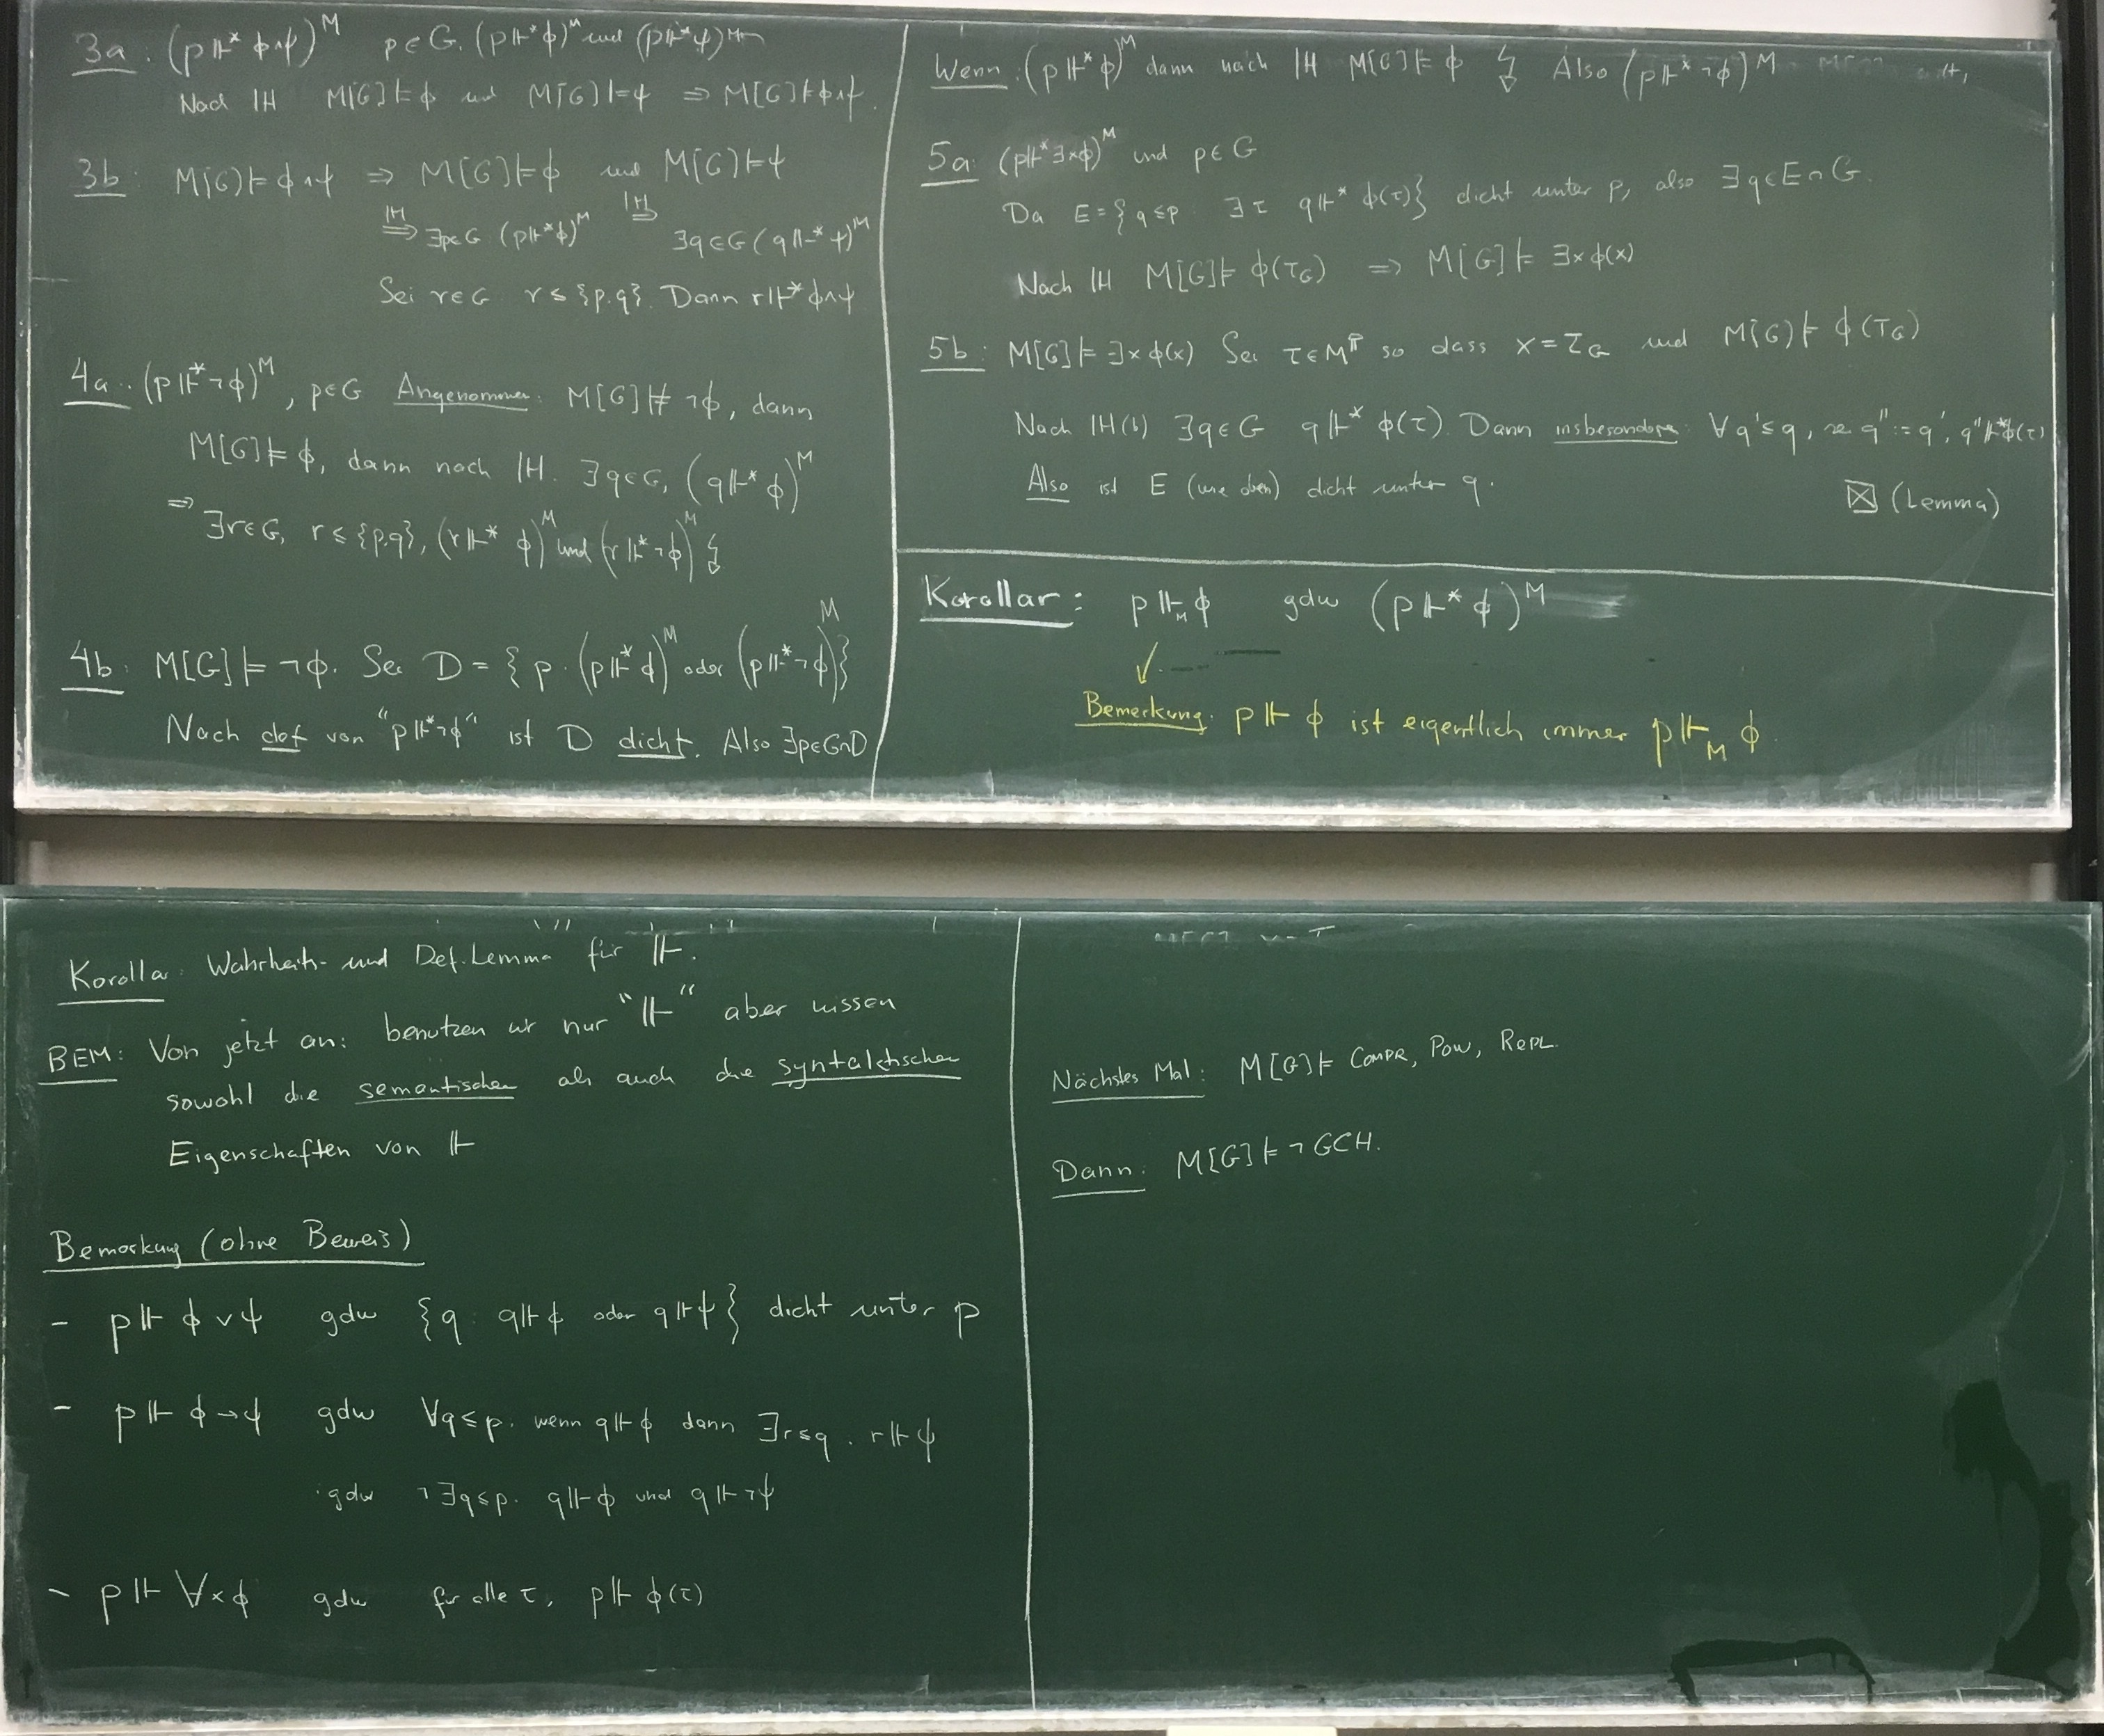 3a: (p ⊩* ϕ∧ψ)^M p∈G, (p⊩*ϕ)^M und (p⊩*ψ)^M
Nach IH M[G]⊨ϕ und M[G]⊨ψ ⇒ M[G]⊨ϕ∧ψ.
3b: M[G]⊨ϕ∧ψ ⇒ M[G]⊨ϕ und M[G]⊨ψ
IH⇒ ∃p∈G (p⊩*ϕ)^M IH⇒ ∃q∈G (q⊩*ψ)^M
Sei r∈G r≤{p,q}. Dann r⊩*ϕ∧ψ
4a: (p⊩*¬ϕ)^M, p∈G Angenommen: M[G]⊭¬ϕ, dann
M[G]⊨ϕ, dann nach IH. ∃q∈G, (q⊩*ϕ)^M
⇒ ∃r∈G, r≤{p,q}, (r⊩*ϕ)^M und (r⊩*¬ϕ)^M ↯
4b: M[G]⊨¬ϕ. Sei D = {p : (p⊩*ϕ)^M oder (p⊩*¬ϕ)^M}
Nach def von "p⊩*¬ϕ" ist D dicht. Also ∃p∈G∩D
Wenn: (p⊩*ϕ)^M dann nach IH M[G]⊨ϕ ↯ Also (p⊩*¬ϕ)^M
5a: (p⊩*∃xϕ)^M und p∈G
Da E={q≤p : ∃τ q⊩*ϕ(τ)} dicht unter p, also ∃q∈E∩G.
Nach IH M[G]⊨ϕ(τ_G) ⇒ M[G]⊨∃xϕ(x)
5b: M[G]⊨∃xϕ(x) Sei τ∈M^ℙ so dass x=τ_G und M[G]⊨ϕ(τ_G)
Nach IH(b) ∃q∈G q⊩*ϕ(τ). Dann insbesondere: ∀q'≤q, q'':=q', q''⊩*ϕ(τ)
Also ist E (wie oben) dicht unter q.
☒ (Lemma)
Korollar: p⊩_M ϕ gdw (p⊩*ϕ)^M
✓
Bemerkung: p⊩ϕ ist eigentlich immer p⊩_M ϕ.
Korolla: Wahrheits- und Def.Lemma für ⊩.
BEM: Von jetzt an: benutzen wir nur "⊩" aber wissen
sowohl die semantischen als auch die syntaktischen
Eigenschaften von ⊩
Bemerkung (ohne Beweis)
- p⊩ϕ∨ψ gdw {q : q⊩ϕ oder q⊩ψ} dicht unter p
- p⊩ϕ→ψ gdw ∀q≤p. wenn q⊩ϕ dann ∃r≤q. r⊩ψ
gdw ¬∃q≤p. q⊩ϕ und q⊩¬ψ
- p⊩∀xϕ gdw für alle τ, p⊩ϕ(τ)
Nächstes Mal: M[G]⊨ COMPR, POW, REPL.
Dann: M[G]⊨¬GCH.